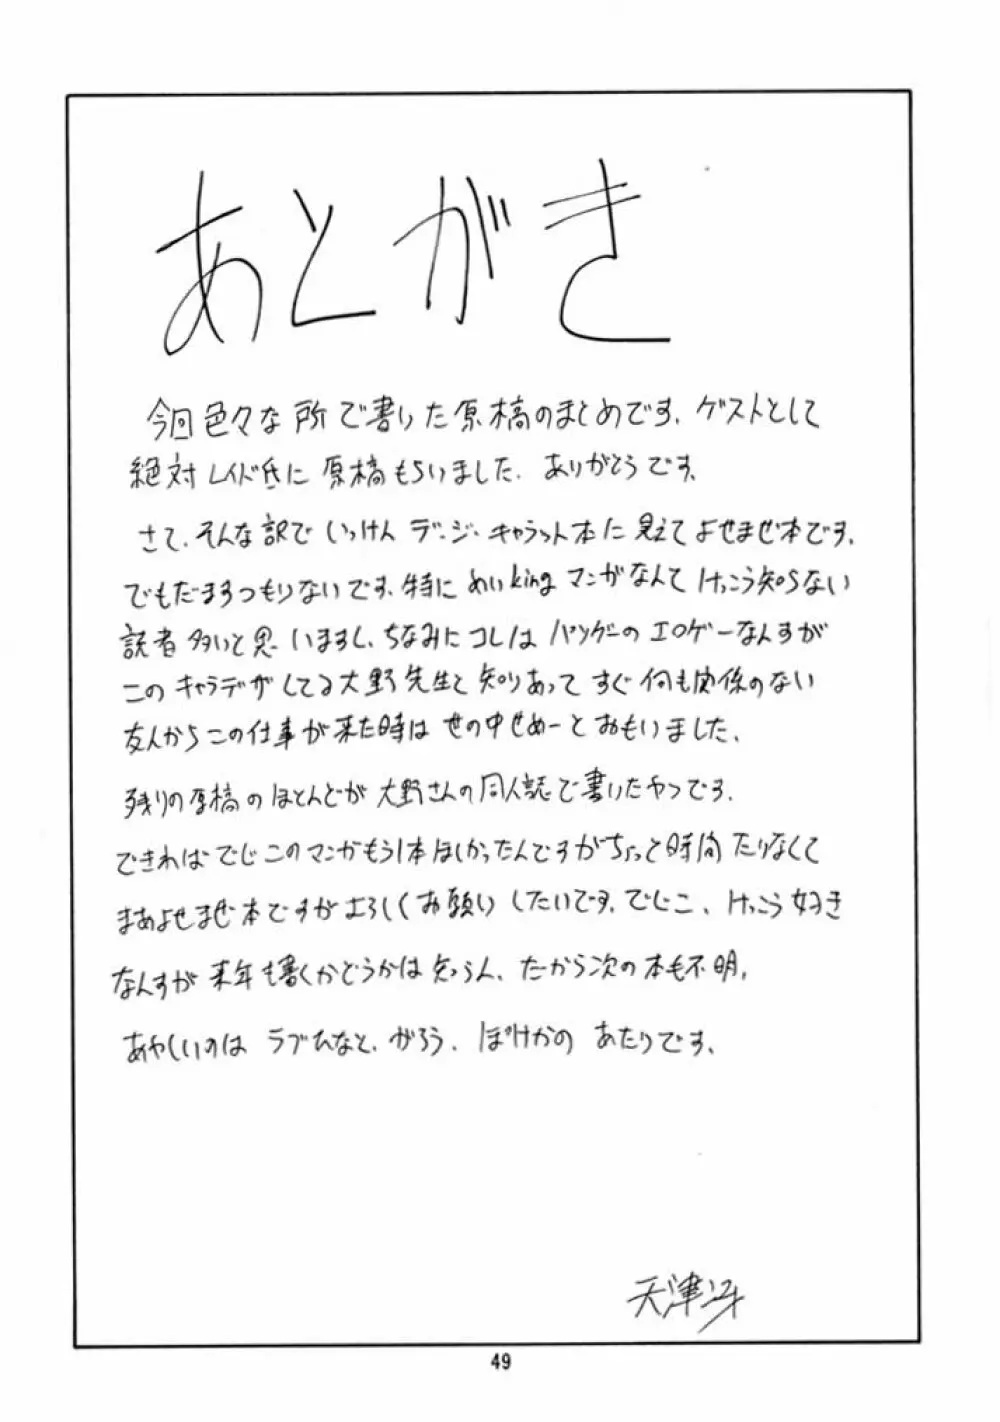 あとがき
今回色々な所で書いた原稿のまとめです。ゲストとして
絶対レイド氏に原稿もらいました。ありがとうです。
さて、そんな訳でいっけんデ・ジ・キャラット本に見えてよせまぜ本です。
でもだますつもりないです、特にめいkingマンガなんてけっこう知らない
読者多いと思いますし、ちなみにコレはパソゲーのエロゲーなんすが
このキャラデザしてる大野先生と知りあってすぐ何も関係のない
友人からこの仕事が来た時は世の中せめーとおもいました、
残りの原稿のほとんどが大野さんの同人誌で書いたやつです。
できればでじこのマンガもう1本ほしかったんですがちょっと時間たりなくて
まあよせまぜ本ですがよろしくお願いしたいです。でじこ、けっこう好き
なんすが来年も書くかどうかは知らん、だから次の本も不明。
あやしいのはラブひなと、がろう、ぽけかのあたりです、
天津冴
49